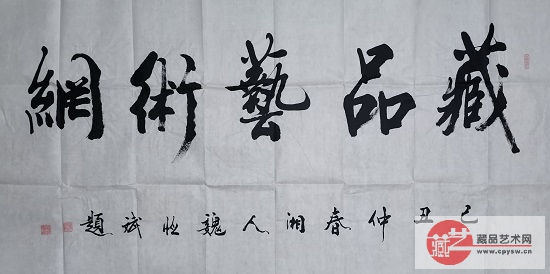 藏品藝術網
己丑仲春湘人魏恒斌題
藏艺
藏品艺术网
www.cpysw.cn